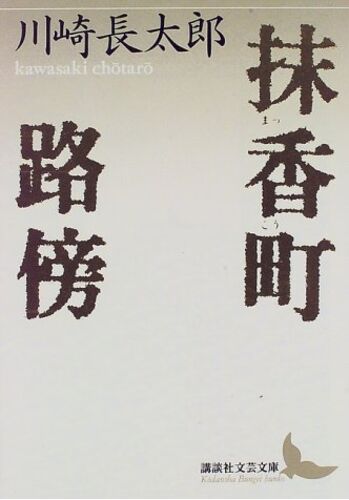 川崎長太郎
kawasaki chōtarō
抹香町
まっ
こう
路傍
講談社文芸文庫
Kodansha Bungei bunko